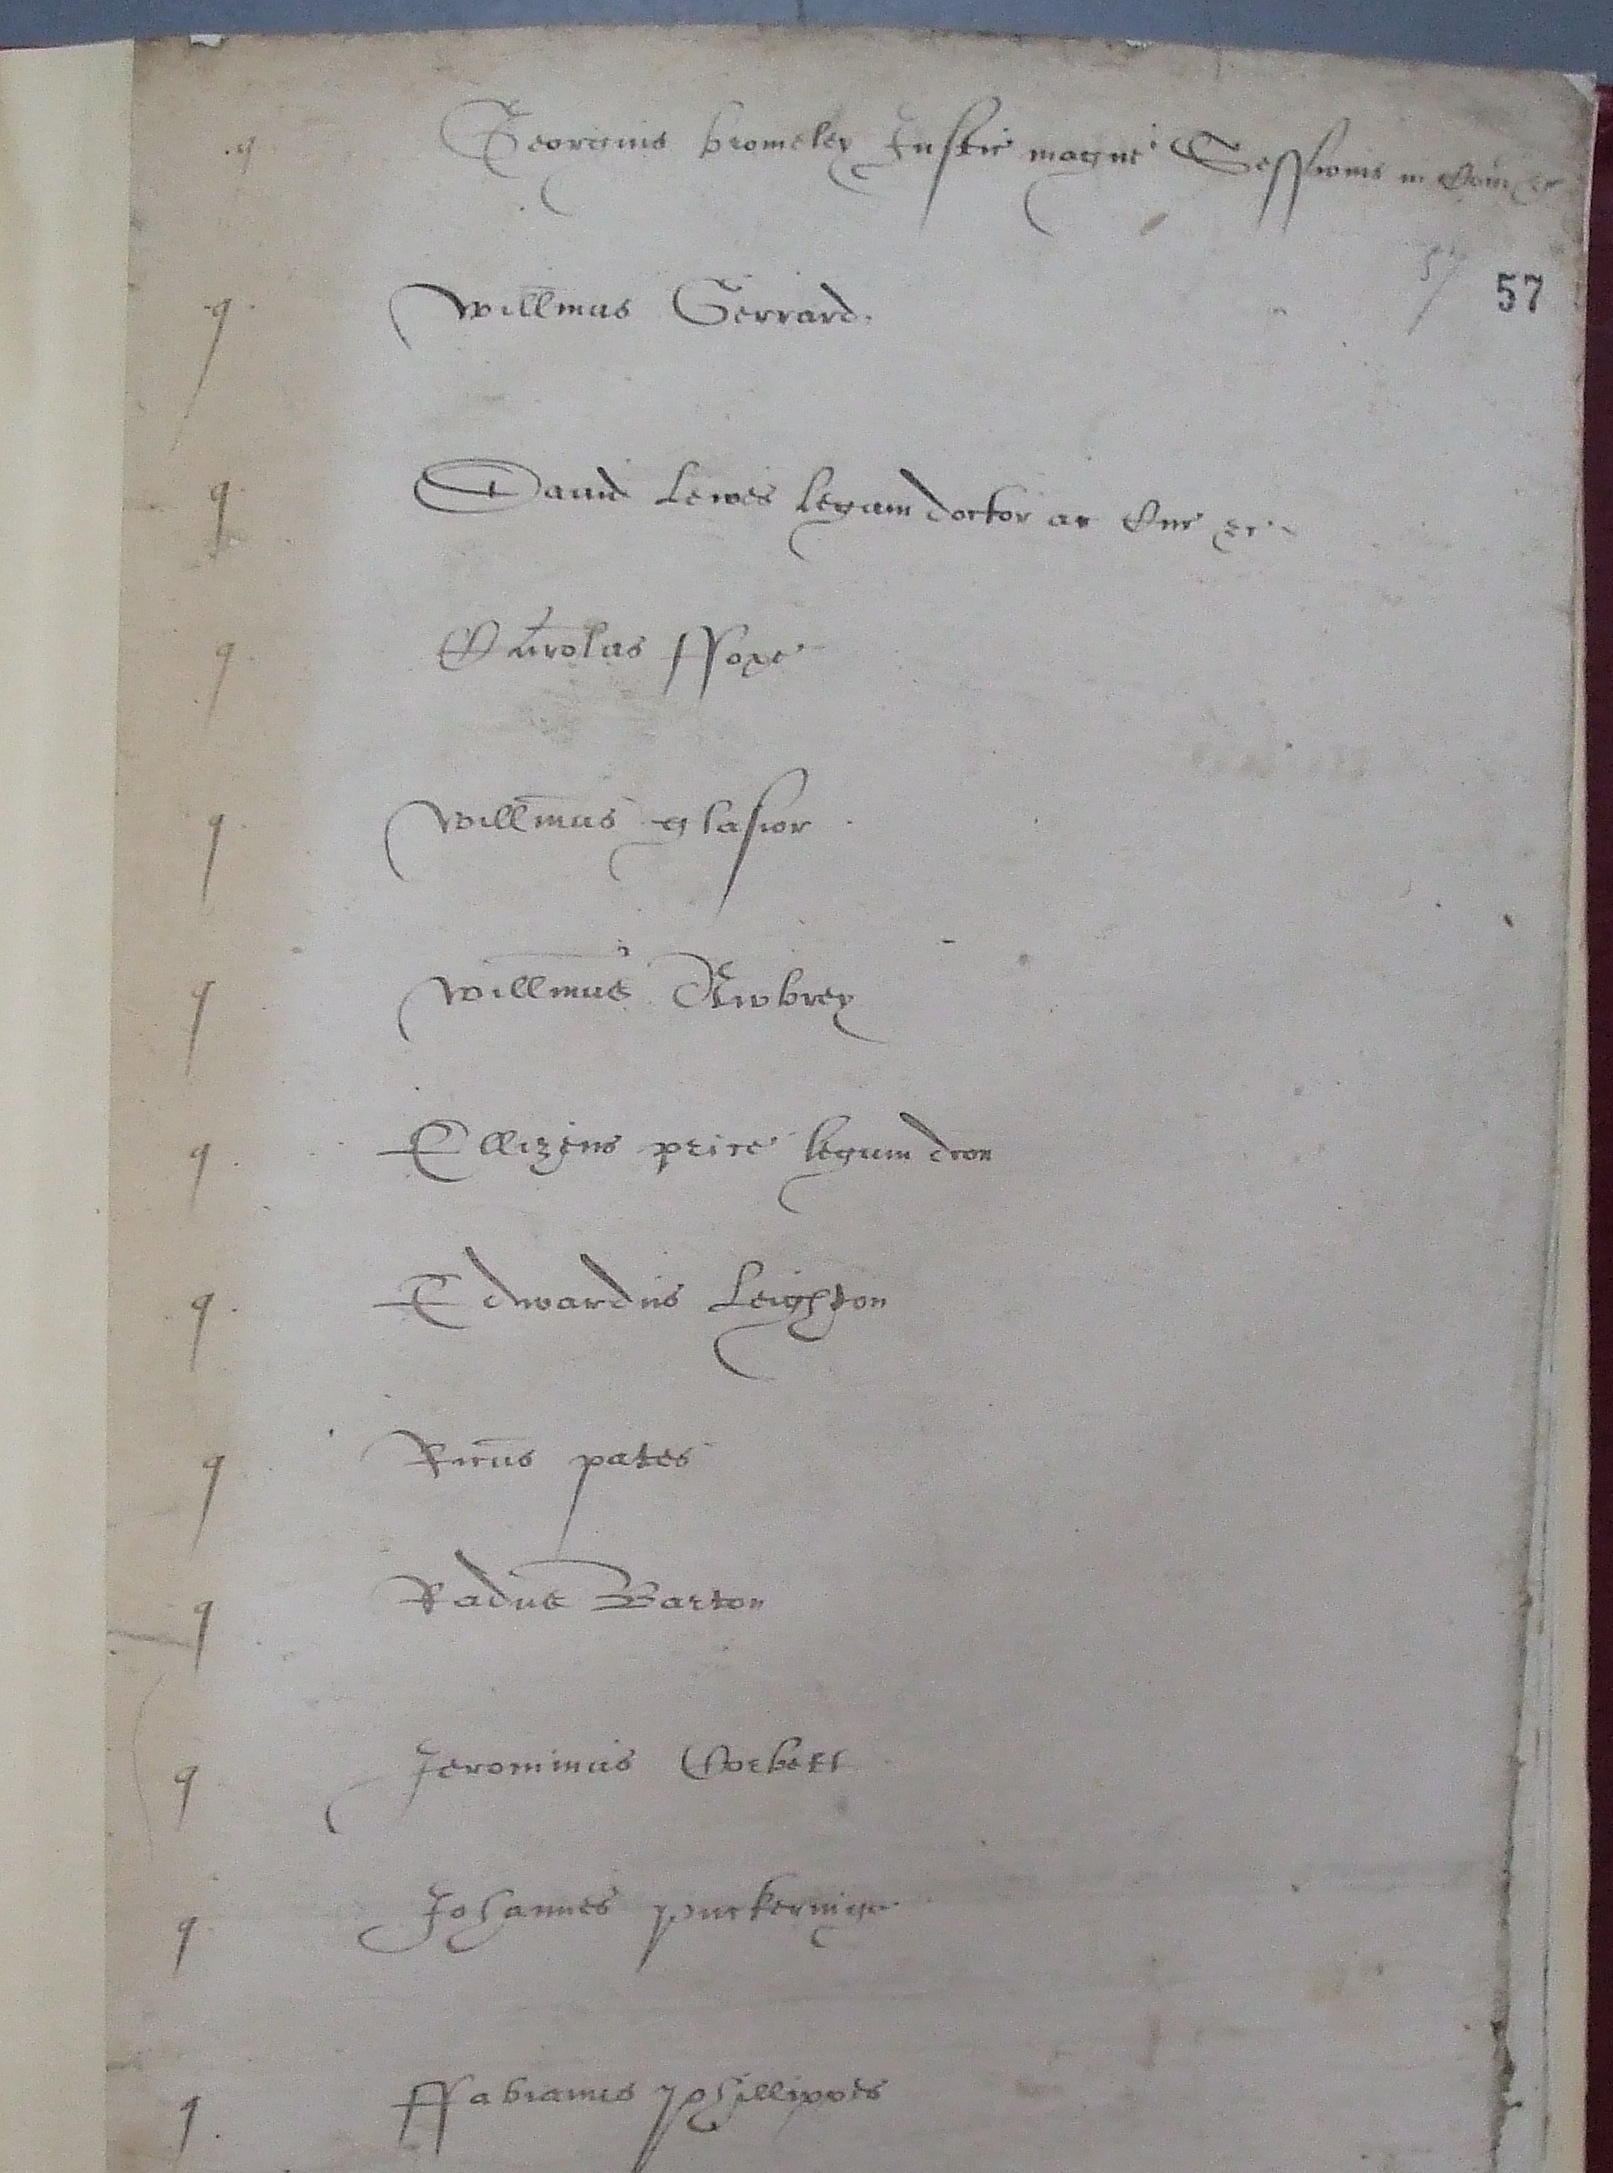 q Georgius Bromeley Justic magne Sessionis in Com
57 57
q Willmus Gerrard
q David Lewes legum doctor ar
q Nicolas ffoxe
q Willmus glasior
q Willmus Awbrey
q Ellizeus price legum dcor
q Edwardus Leighton
q Ricus pates
q Radus Barton
q Jerominus Corbett
q Johannes puckeringe
q ffabianus phillippes